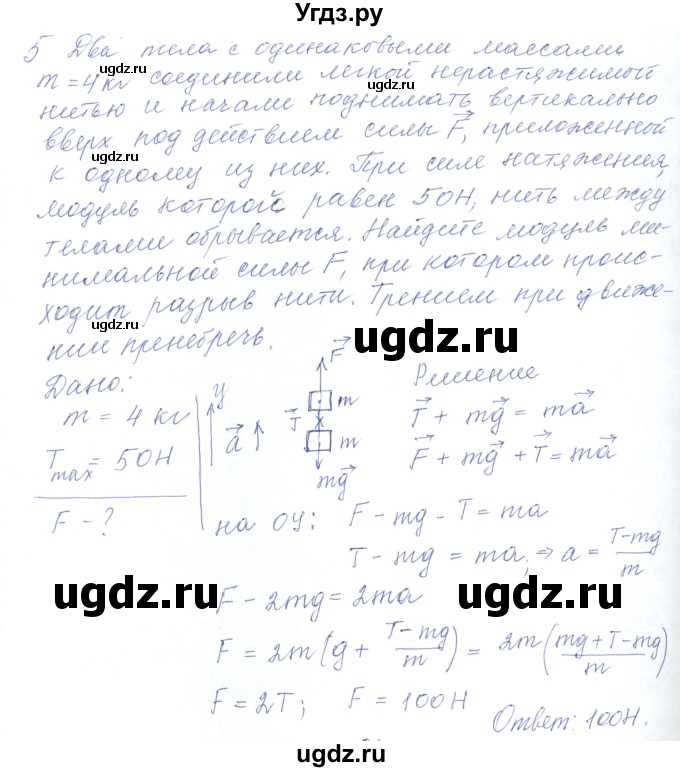 Угдз.ру
5 Два тела с одинаковыми массами
m = 4 кг соединили легкой нерастяжимый
нитью и начали поднимать вертикально
вверх под действием силы F⃗, приложенной
к одному из них. При силе натяжения,
модуль которого равен 50Н, нить между
телами обрывается. Найдите модуль ми-
нимальной силы F, при котором проис-
ходит разрыв нити. Трением при движе-
нии пренебречь.
Дано:
m = 4 кг
Tmax = 50Н
F - ?
y
a⃗
F⃗
m
T⃗
m
mg⃗
Решение
T⃗ + mg⃗ = ma⃗
F⃗ + mg⃗ + T⃗ = ma⃗
на OУ: F - mg - T = ma
T - mg = ma; ⇒ a = (T-mg)/m
F - 2mg = 2ma
F = 2m(g + (T-mg)/m) = 2m((mg+T-mg)/m)
F = 2T; F = 100Н
Ответ: 100Н.
ugdz.ru
ugdz.ru
ugdz.ru
ugdz.ru
ugdz.ru
ugdz.ru
ugdz.ru
ugdz.ru
ugdz.ru